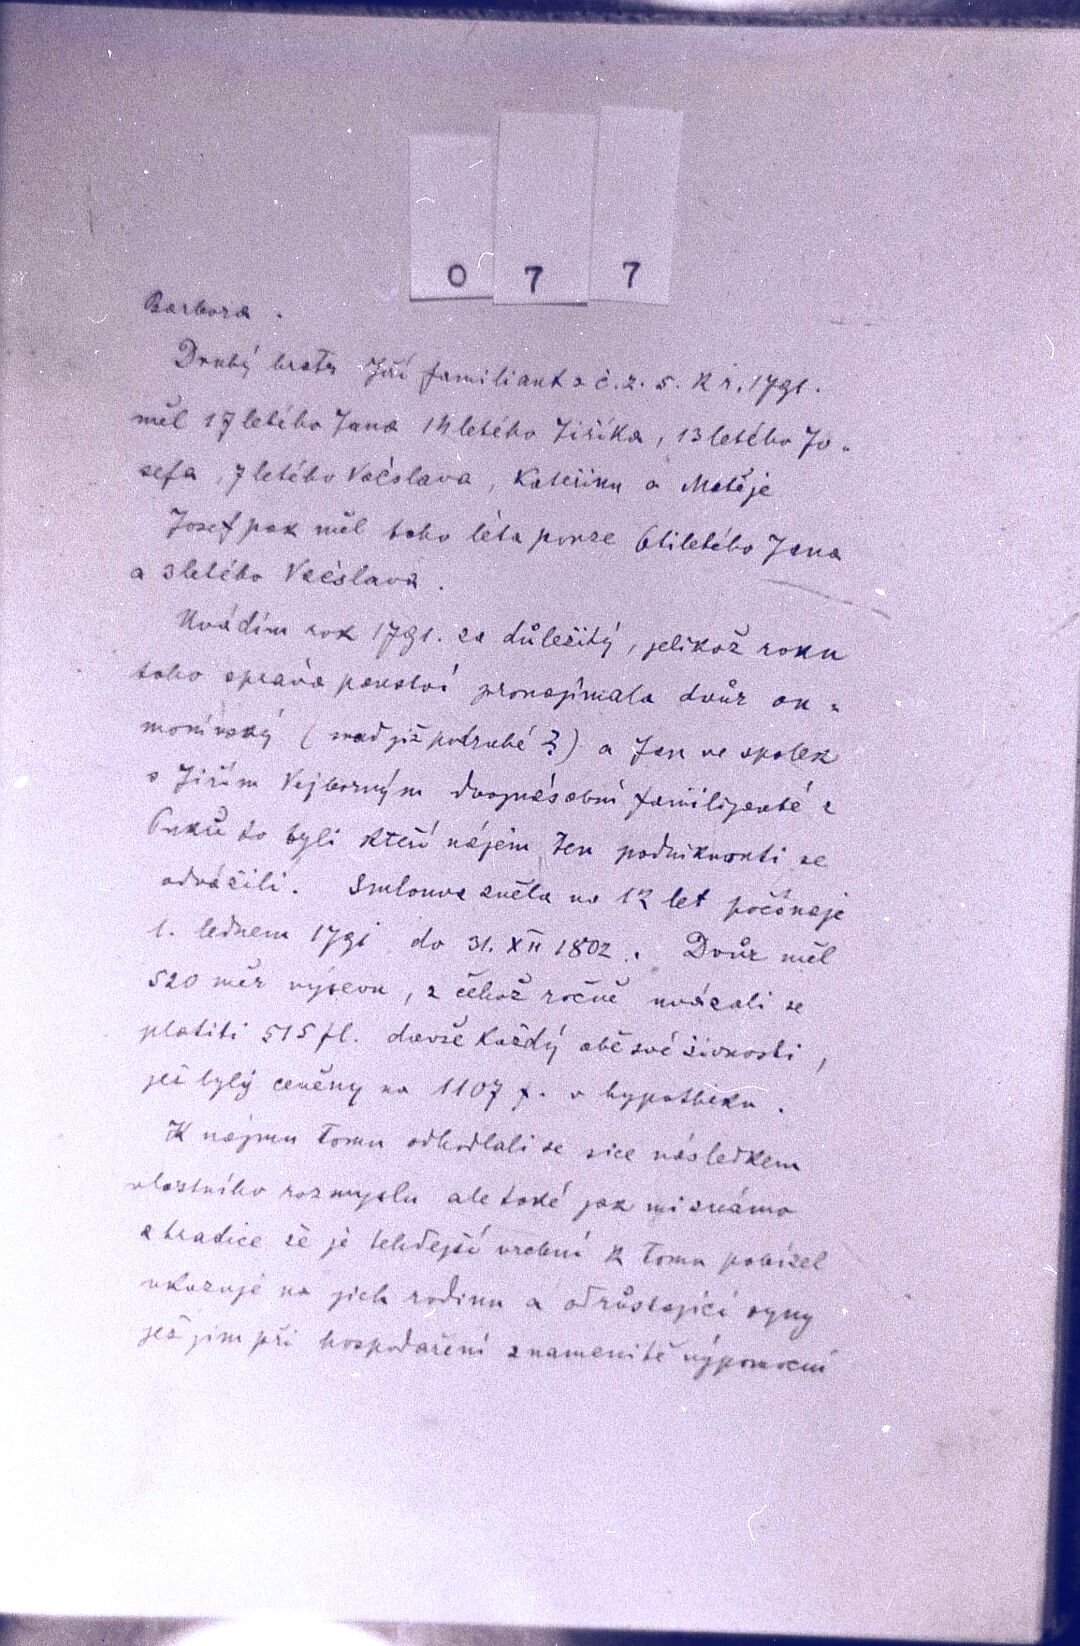 0 7 7
Barbora .
Druhý bratr Jiří familiant z č. z. 5. K r. 1791.
měl 17letého Jana 14letého Jiříka, 13letého Jo-
sefa, 7letého Vácslava, Kateřinu a Matěje
Josef pak měl toho léta pouze 6tiletého Jana
a 3letého Vácslava.
Uvádím rok 1791. za důležitý, jelikož roku
toho správa panství pronajímala dvůr
( snad již podruhé ? ) a Jan ve spolek
s Jiřím Vejborným dvojnásobní familijanté z
to byli kteří nájem ten podniknouti se
odvážili. Smlouva zněla na 12 let počínaje
1. lednem 1791 do 31. XII 1802. Dvůr měl
520 měr výsevu, z čehož ročně uvázali se
platiti 515 fl. davše každý obě své živnosti,
jež byly ceněny na 1107 f. v hypotheku.
K nájmu tomu odhodlali se sice následkem
vlastního rozmyslu ale také jak mi známo
z tradice že je tehdejší vrchní k tomu pobízel
ukazuje na jich rodinu a odrůstající syny
jež jim při hospodaření znamenitě výpomocní